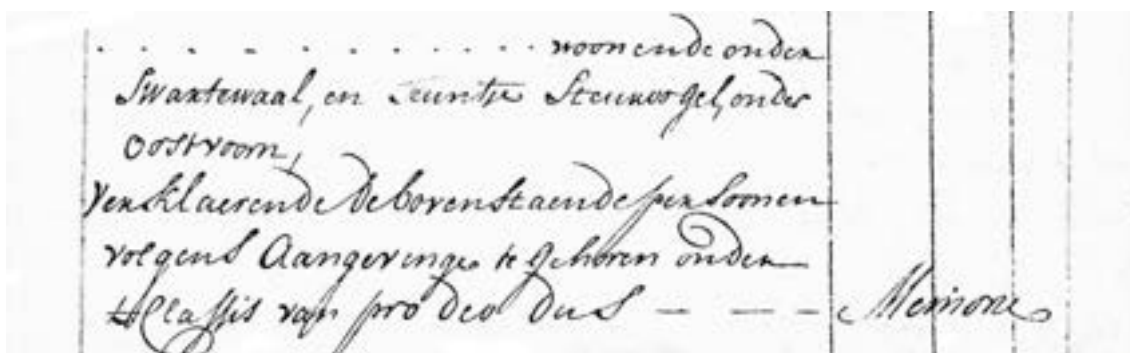 . . . . . . . . . . . . woonende onder
Swartewaal, en Leuntje Steurvogel, onder
Oostvoorn,
Verklaerende de bovenstaende persoonen
volgens Aangevinge te gehoren onder
Classis van pro deo dus — — — Memorie